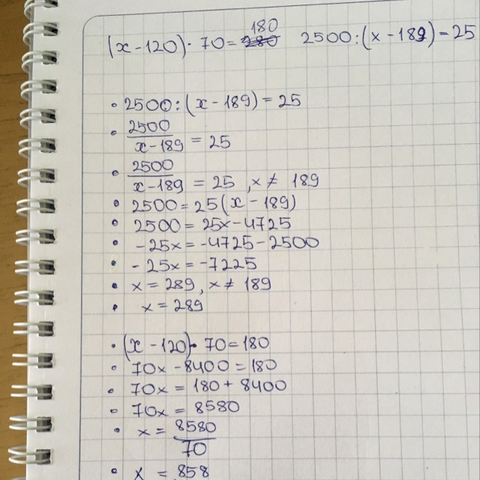 (x-120)·70=280 180 2500:(x-189)=25
• 2500:(x-189)=25
• 2500/x-189 = 25
• 2500/x-189 = 25, x≠ 189
• 2500=25(x-189)
• 2500=25x-4725
• -25x=-4725-2500
• -25x=-7225
• x=289, x≠189
• x=289
• (x-120)·70=180
• 70x-8400=180
• 70x=180+8400
• 70x=8580
• x=8580/70
• x=858